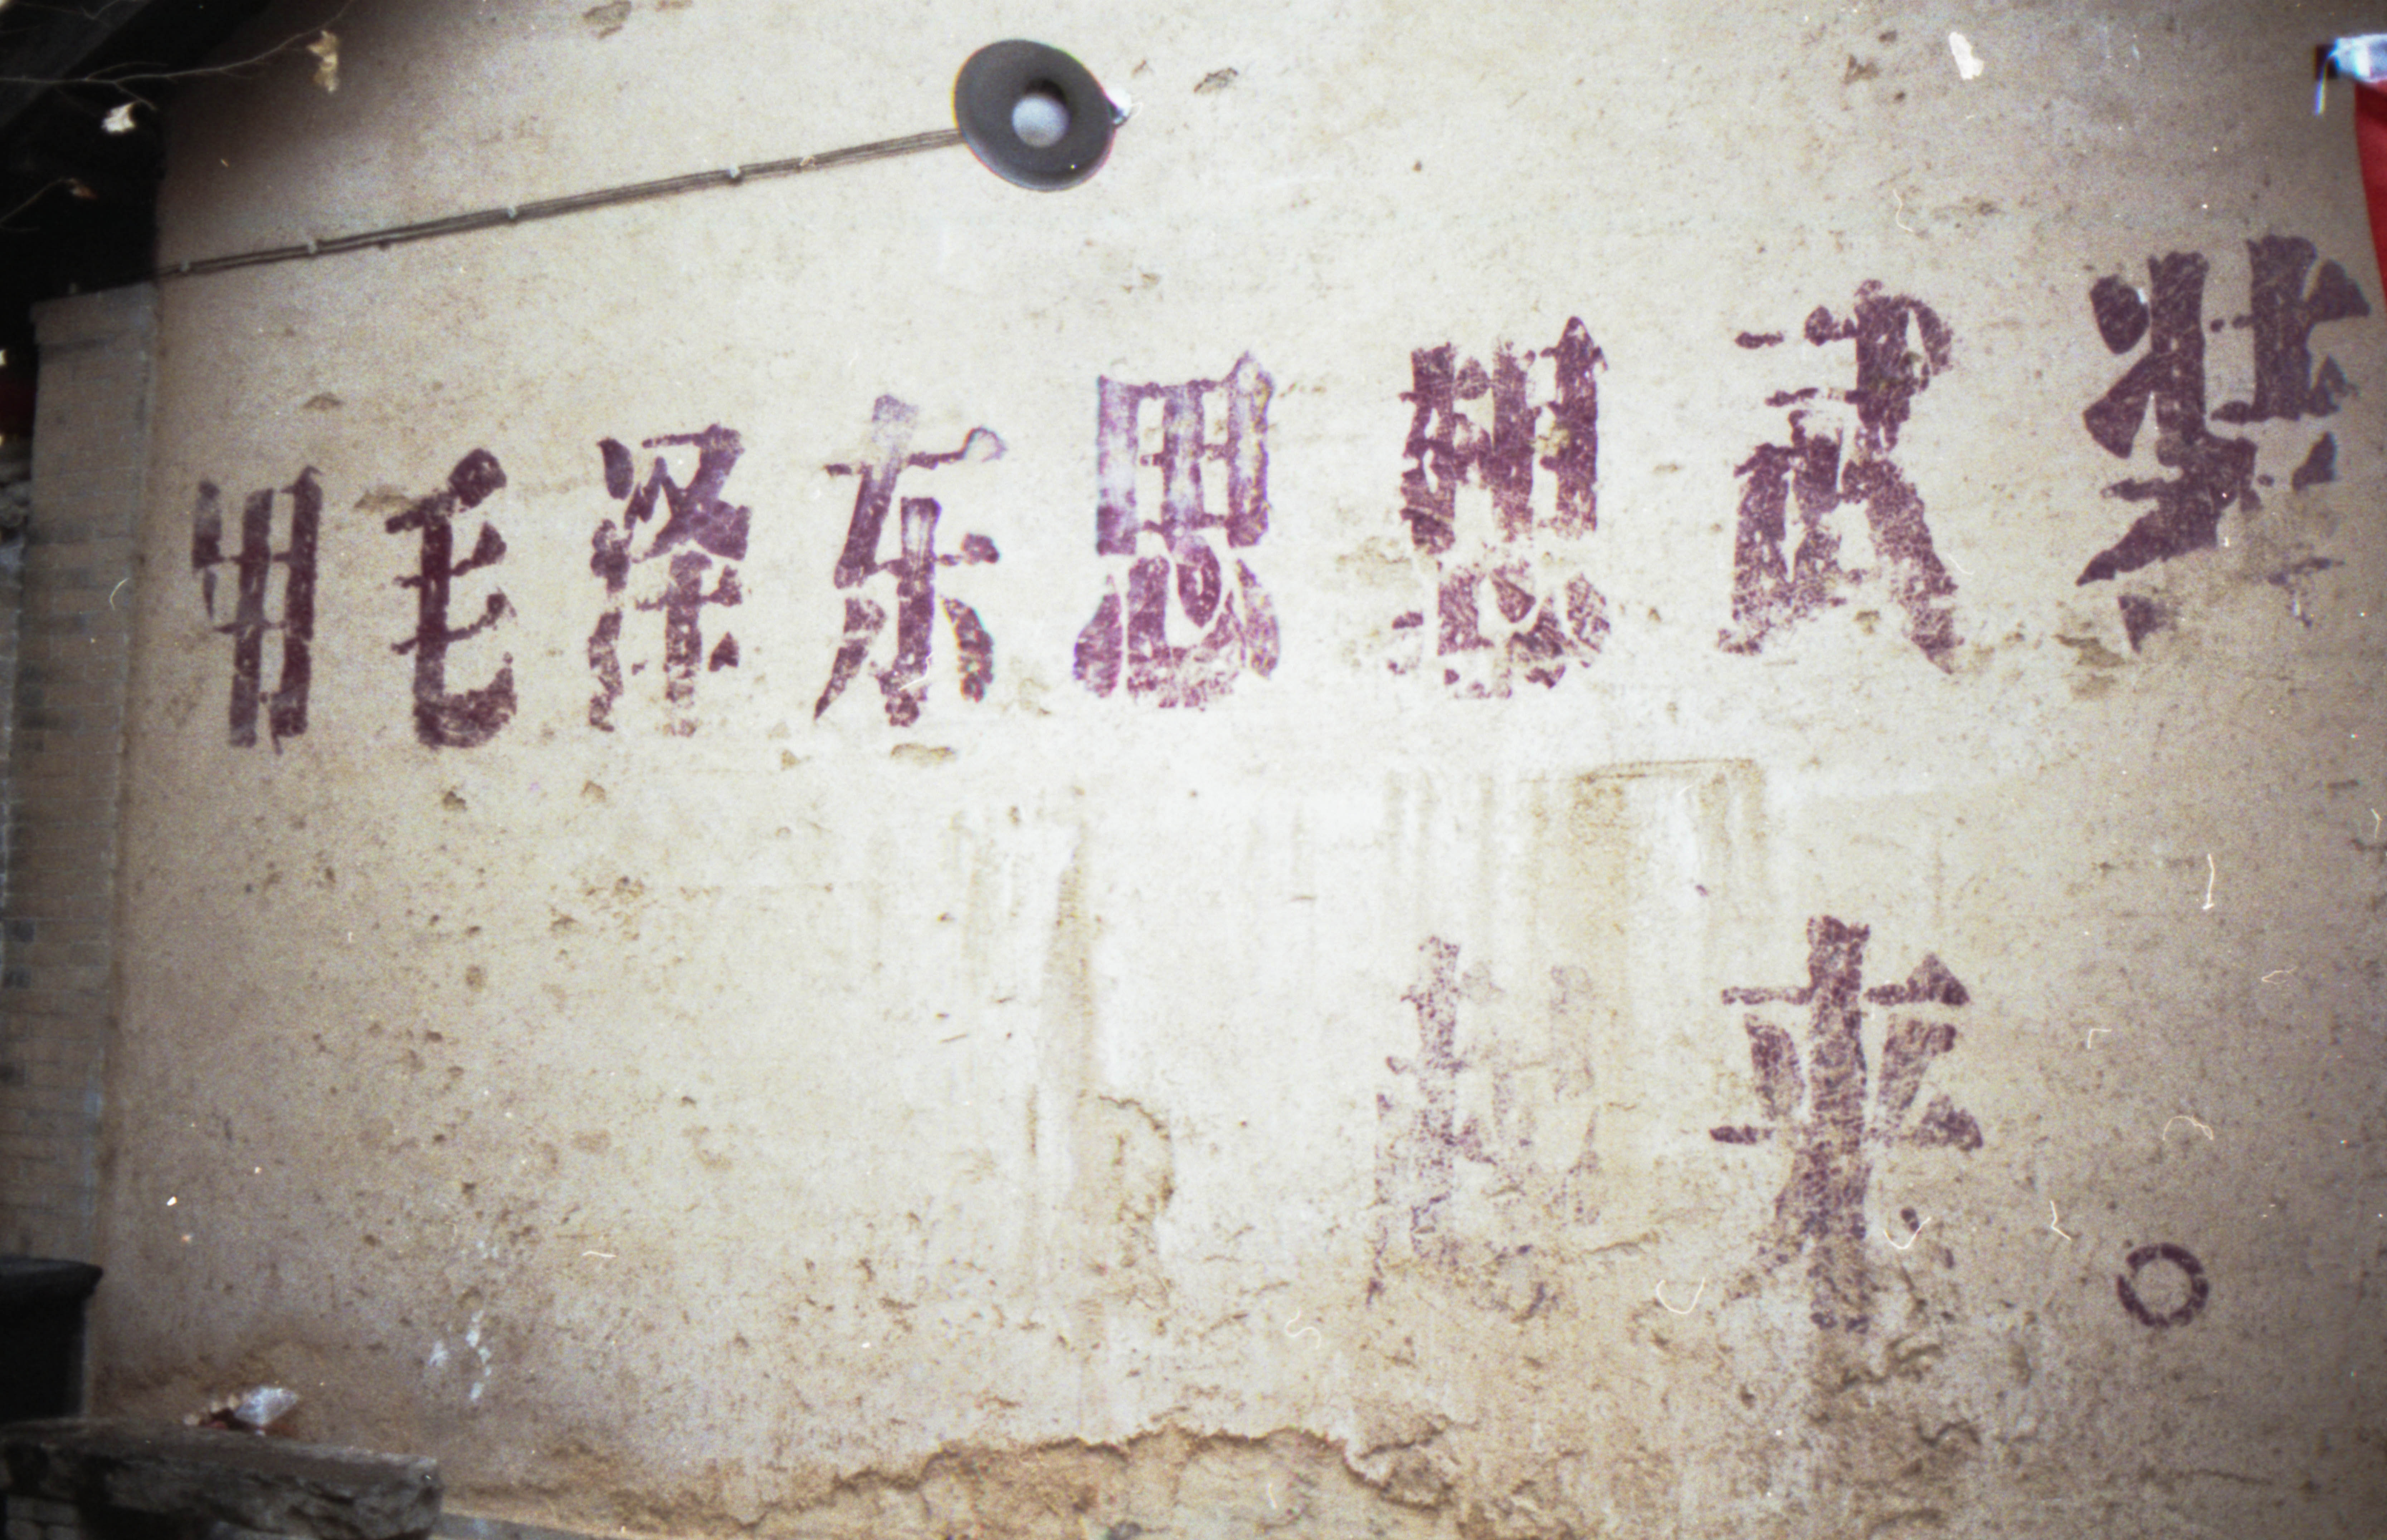 用毛泽东思想武装
起来。